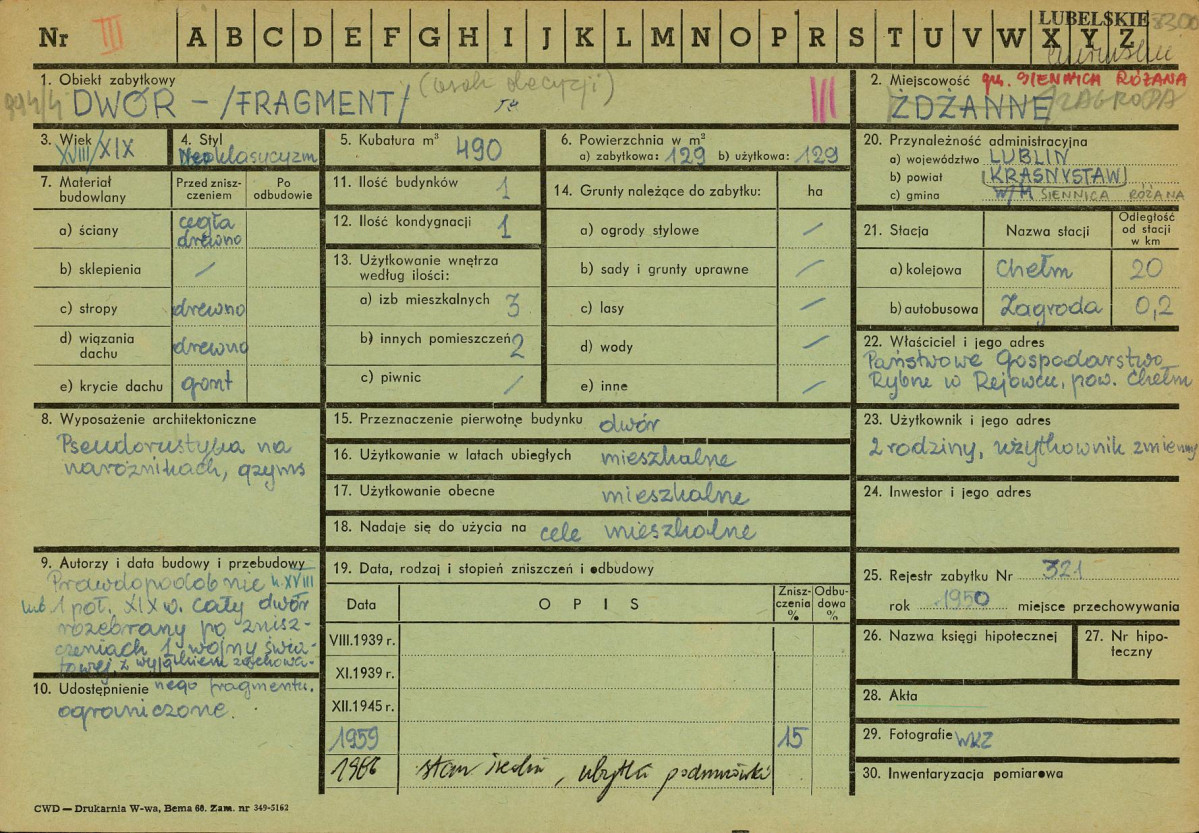 LUBELSKIE
Nr III A B C D E F G H I J K L M N O P R S T U V W X Y Z
1. Obiekt zabytkowy
DWÓR - /FRAGMENT/
III
2. Miejscowość gm. SIENNICA RÓŻANA
ŻDŻANNE /ZAGRODA
3. Wiek
XVIII/XIX
4. Styl
Neoklasycyzm
5. Kubatura m³ 490
6. Powierzchnia w m²
a) zabytkowa: 129 b) użytkowa: 129
20. Przynależność administracyjna
a) województwo LUBLIN
b) powiat KRASNYSTAW
c) gmina W/M SIENNICA RÓŻANA
7. Materiał budowlany
Przed zniszczeniem
Po odbudowie
a) ściany cegła drewno
b) sklepienia /
c) stropy drewno
d) wiązania dachu drewno
e) krycie dachu gont
11. Ilość budynków 1
12. Ilość kondygnacji 1
13. Użytkowanie wnętrza
według ilości:
a) izb mieszkalnych 3
b) innych pomieszczeń 2
c) piwnic /
14. Grunty należące do zabytku: ha
a) ogrody stylowe /
b) sady i grunty uprawne /
c) lasy /
d) wody /
e) inne /
21. Stacja
Nazwa stacji
Odległość
od stacji
w km
a) kolejowa Chełm 20
b) autobusowa Zagroda 0,2
22. Właściciel i jego adres
Państwowe Gospodarstwo
Rybne w Rejowcu, pow. Chełm
8. Wyposażenie architektoniczne
Pseudorustyka na
narożnikach, gzyms
15. Przeznaczenie pierwotne budynku dwór
16. Użytkowanie w latach ubiegłych mieszkalne
17. Użytkowanie obecne mieszkalne
18. Nadaje się do użycia na cele mieszkalne
23. Użytkownik i jego adres
2 rodziny, użytkownik zmienny
24. Inwestor i jego adres
9. Autorzy i data budowy i przebudowy
Prawdopodobnie k. XVIII
lub 1 poł. XIX w. Cały dwór
rozebrany po znisz-
czeniach 1 wojny świa-
towej z wyjątkiem zachowa-
nego fragmentu.
10. Udostępnienie
ograniczone.
19. Data, rodzaj i stopień zniszczeń i odbudowy
Data
OPIS
Znisz-
czenia
%
Odbu-
dowa
%
VIII.1939 r.
XI.1939 r.
XII.1945 r.
1959 15
1966 stan średni, ubytki podmurówki
25. Rejestr zabytku Nr 321
rok 1950 miejsce przechowywania
26. Nazwa księgi hipotecznej
27. Nr hipo-
teczny
28. Akta
29. Fotografie WKZ
30. Inwentaryzacja pomiarowa
CWD — Drukarnia W-wa, Bema 60. Zam. nr 349-5162